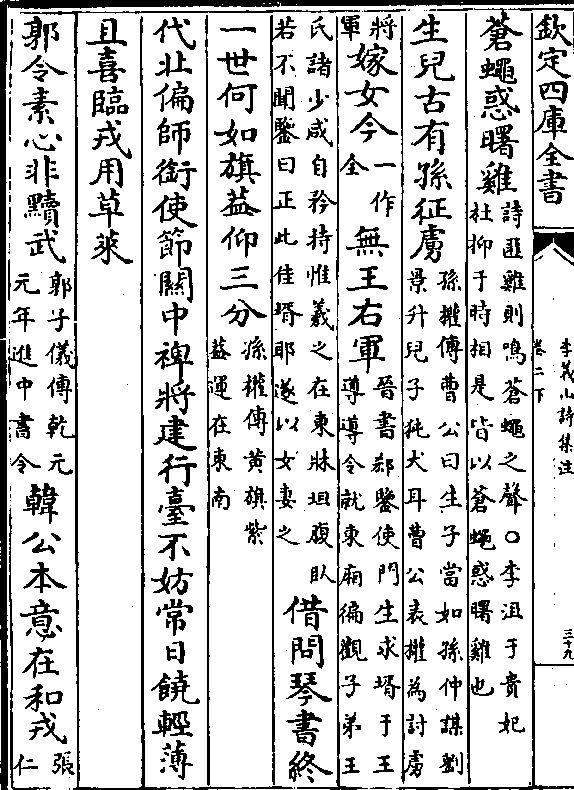 欽定四庫全書
李義山詩集注
卷二下
三十九
蒼蠅惑曙雞
詩匪雞則鳴蒼蠅之聲○李沮于貴妃
杜抑于時相是皆以蒼蠅惑曙雞也
生兒古有孫征虜
孫權傳曹公曰生子當如孫仲謀劉
景升兒子㹠犬耳曹公表權為討虜
將
軍
嫁女今
一作
全
無王右軍
晉書郄鑒使門生求壻于王
導導令就東廂徧觀子弟王
氏諸少咸自矜持惟羲之在東牀坦腹臥
若不聞鑒曰正此佳壻耶遂以女妻之
借問琴書終
一世何如旗葢仰三分
孫權傳黄旗紫
葢運在東南
代北偏師銜使節關中裨將建行臺不妨常日饒輕薄
且喜臨戎用草萊
郭令素心非黷武
郭子儀傳乾元
元年進中書令
韓公本意在和戎
張
仁